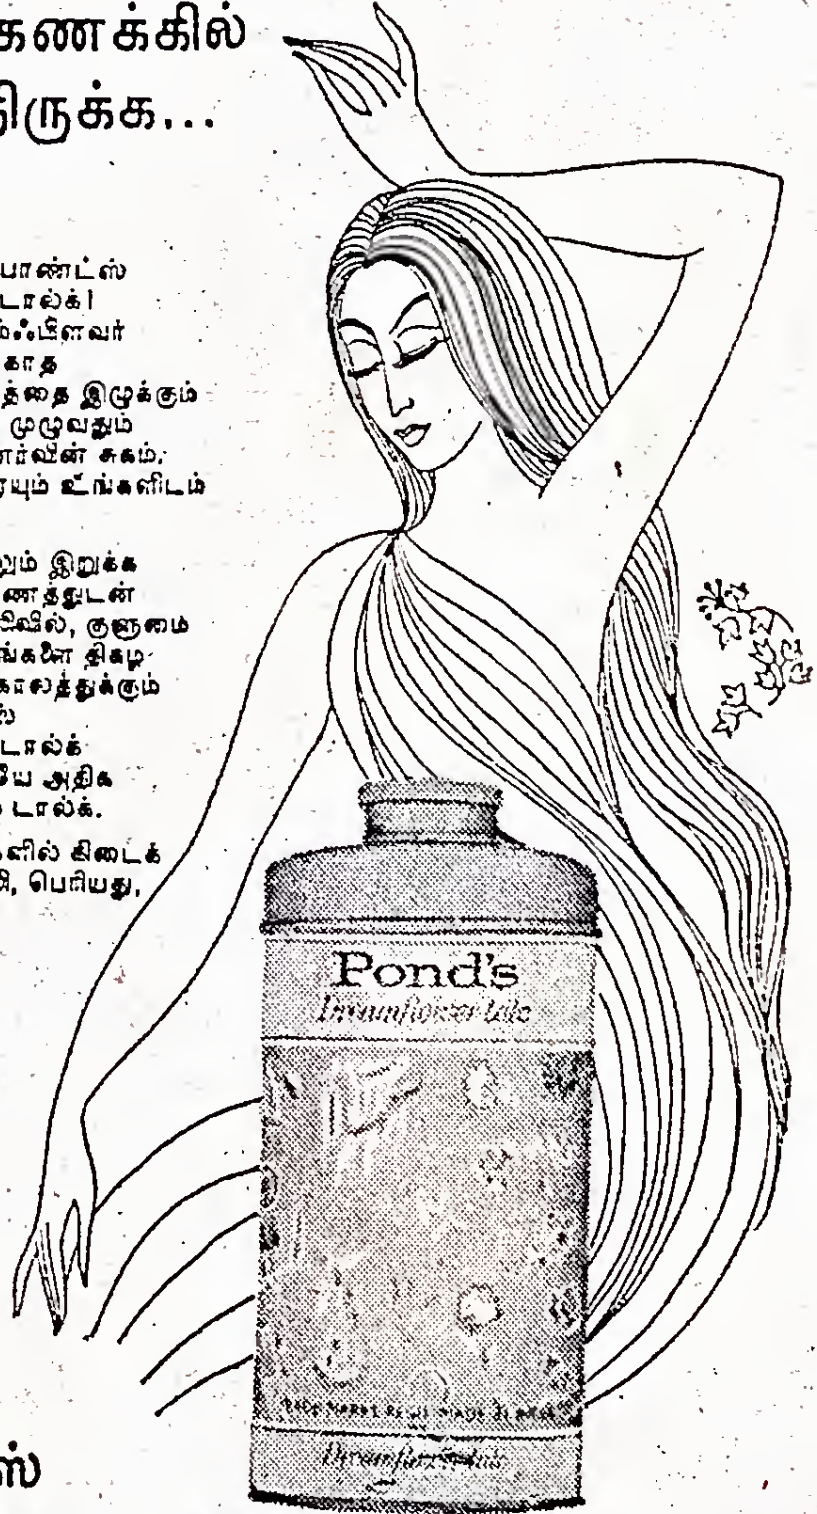 கணக்கில்
திருக்க...
பாண்ட்ஸ்
டால்க்!
ம்ஃபிளவர்
காத
த்தை இழுக்கும்
முழுவதும்
ணர்வின் சுகம்.
ரயும் உங்களிடம்
லும் இறுக்க
ணத்துடன்
பிவில், குளுமை
ங்களை திகழ
காலத்துக்கும்
ஸ்
டால்க்
யே அதிக
டால்க்.
களில் கிடைக்
பெரியது,
Pond's
Dreamflower talc
TRADE MARKS REGD. MADE IN INDIA
Dreamflower talc
ஸ்